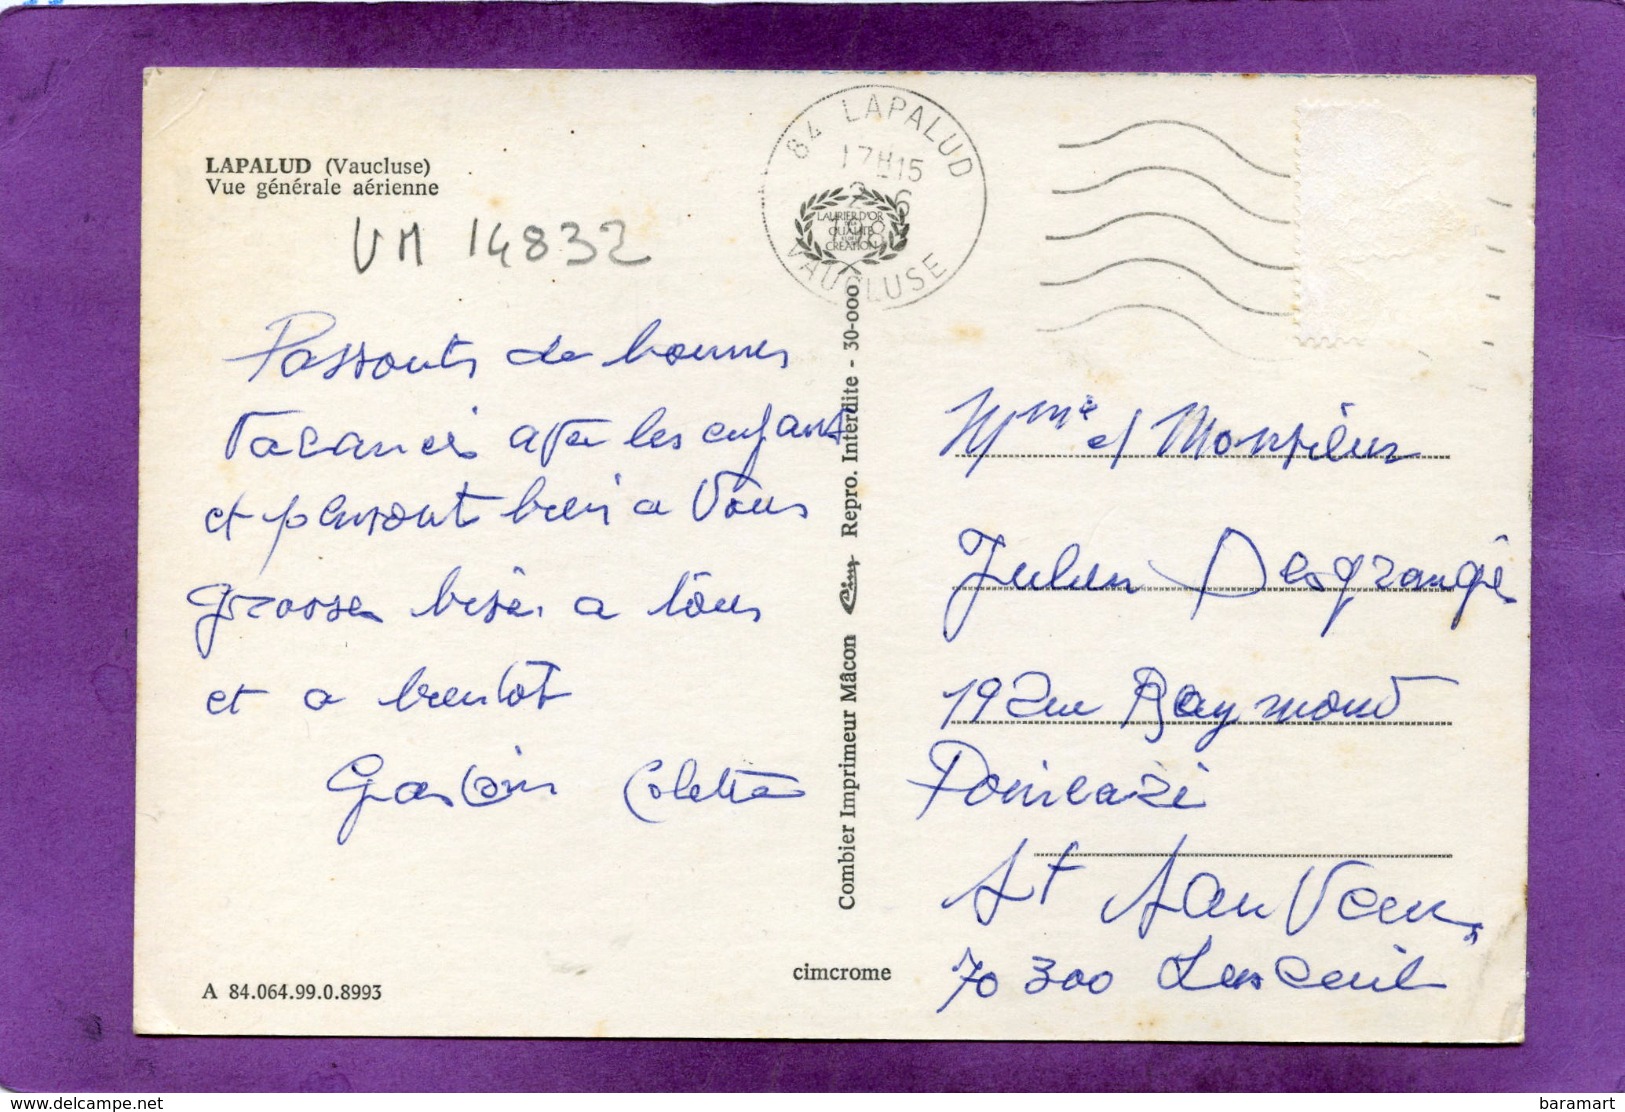 LAPALUD (Vaucluse)
Vue générale aérienne
VM 14832
84 LAPALUD
17H15
6
VAUCLUSE
LAURIER D'OR
QUALITE
CREATION
Passonts de bonnes
Vacances avec les enfants
et pensont bien a Vous
grosses bises a tous
et a bientot
Gaston Colette
Combier Imprimeur Mâcon Cim Repro. Interdite - 30-000
Mme et Monsieur
Julien Desgranges
19 rue Raymond
Poincaré
St Sauveur
70 300 Luxeuil
cimcrome
A 84.064.99.0.8993
baramart
www.delcampe.net